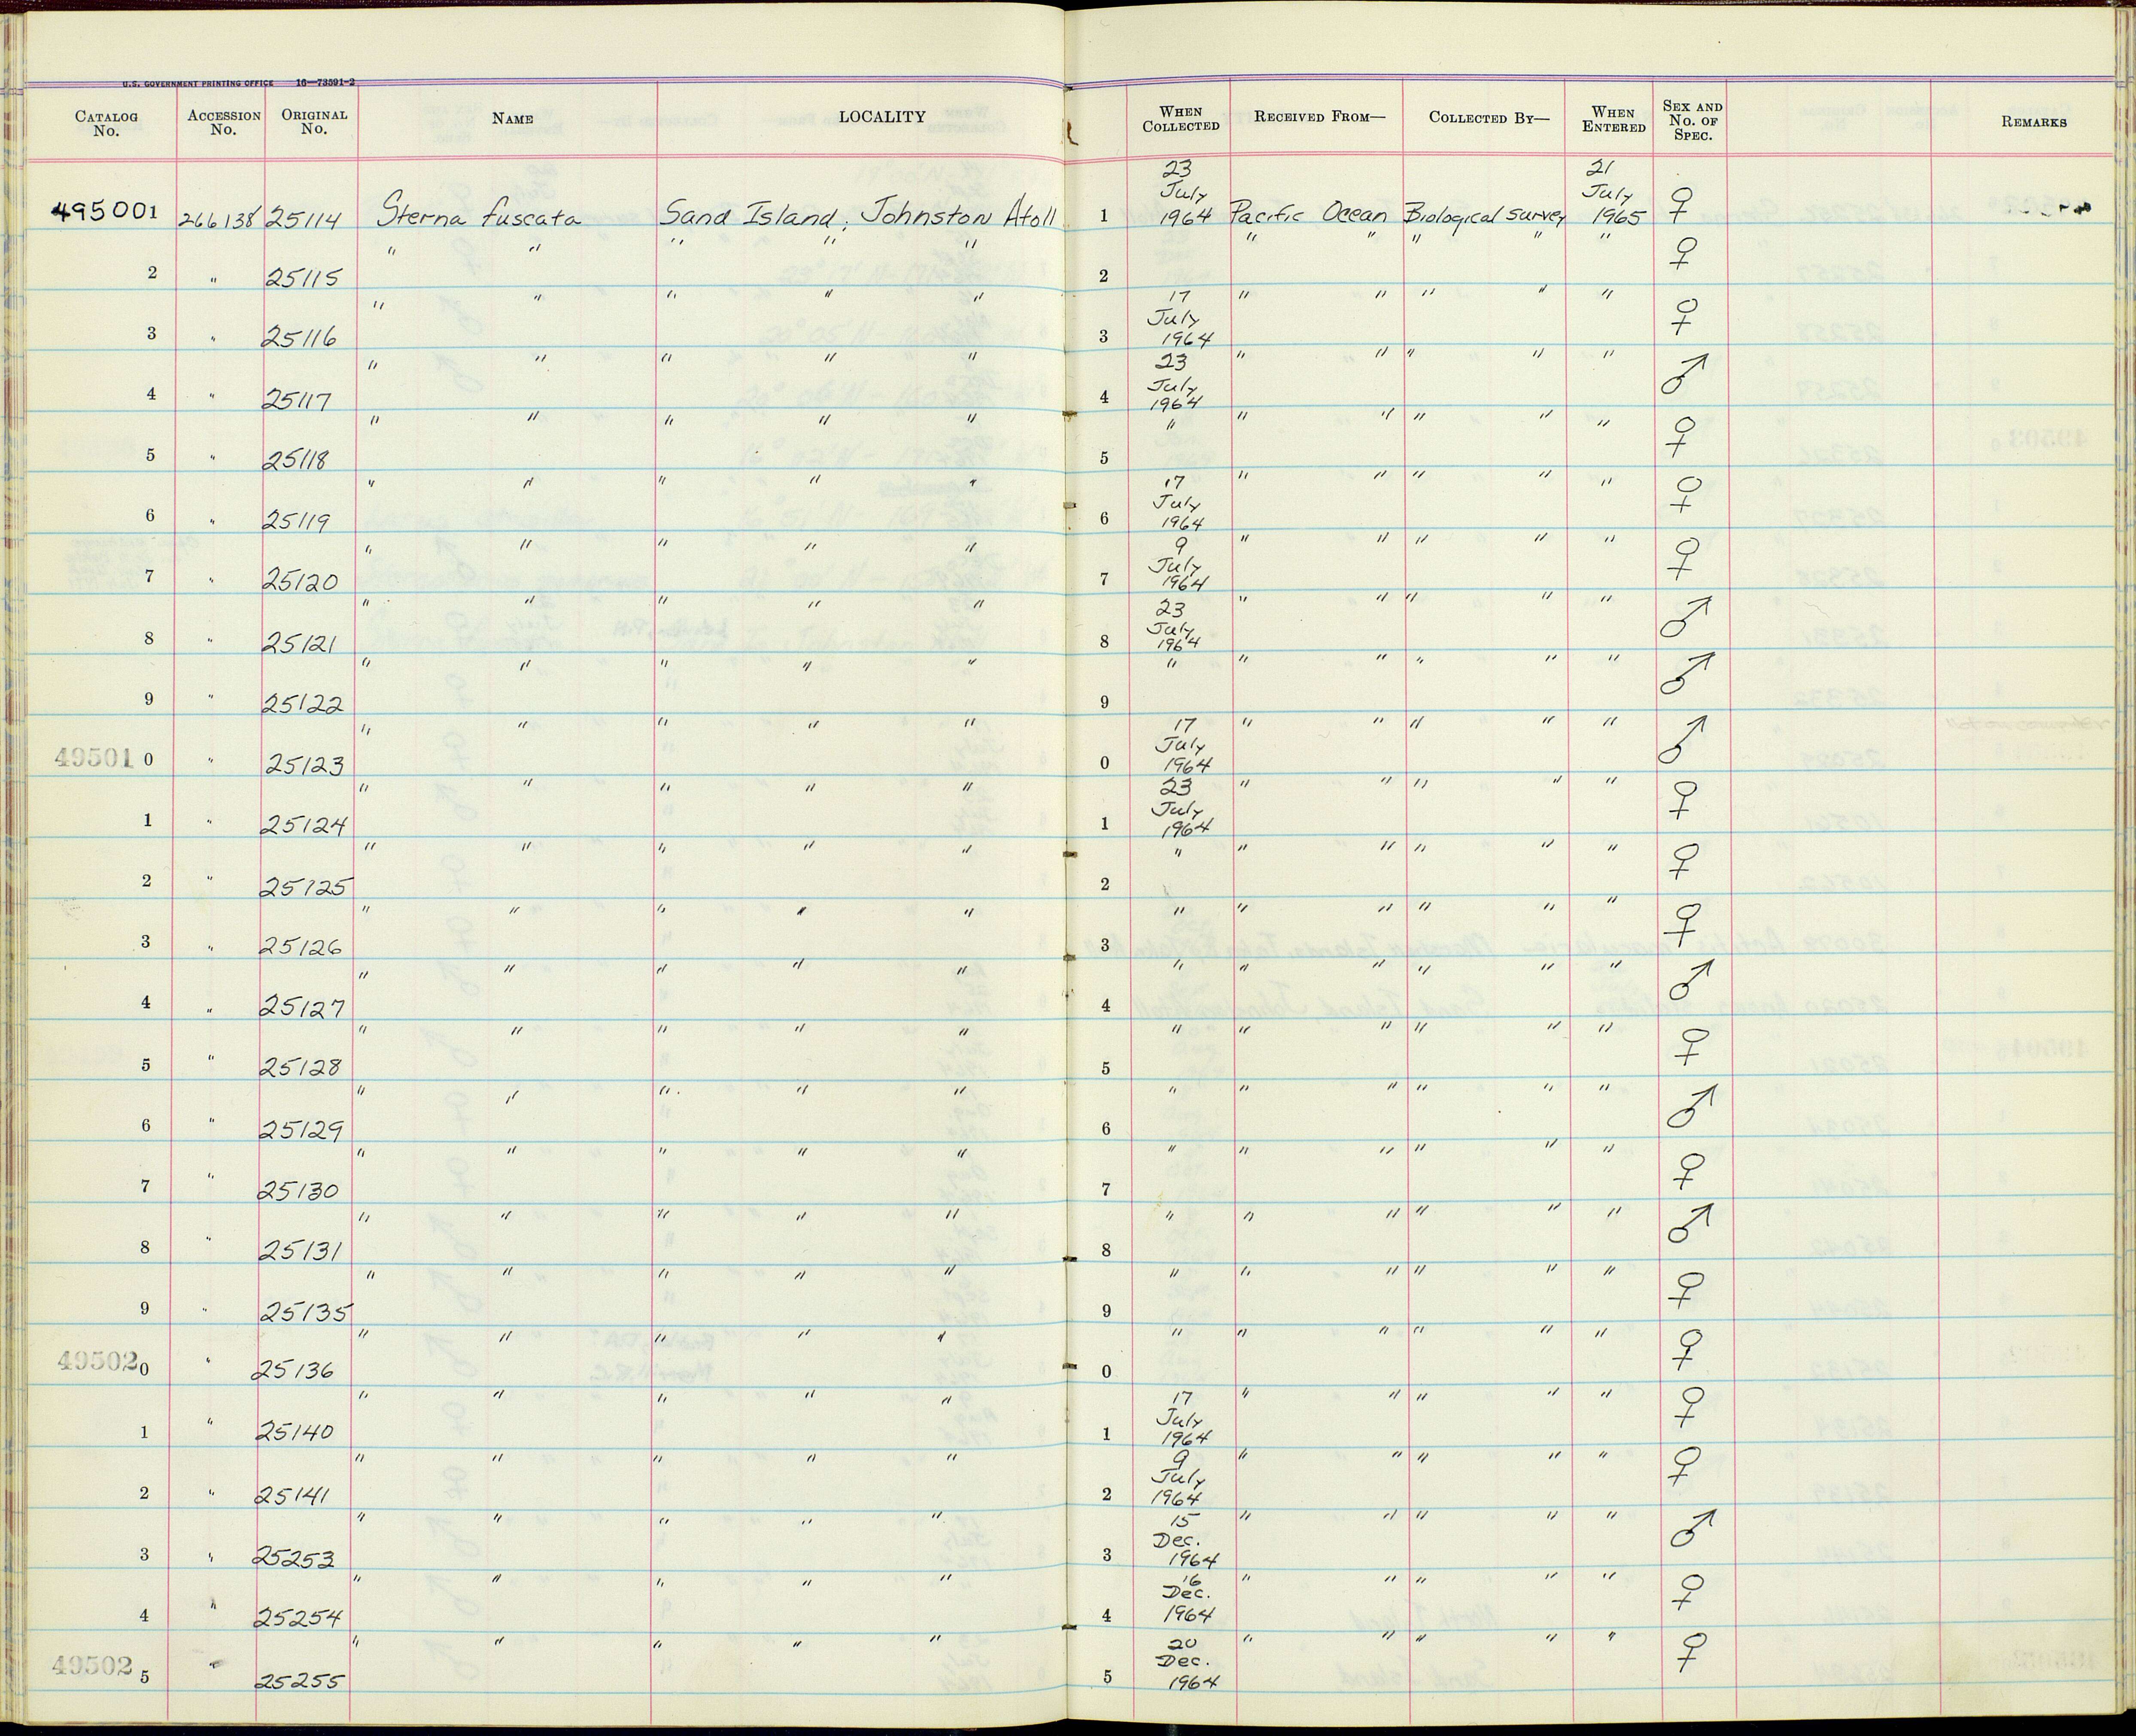 U.S. GOVERNMENT PRINTING OFFICE 16—73591-2
CATALOG No. ACCESSION No. ORIGINAL No. NAME LOCALITY WHEN COLLECTED RECEIVED FROM— COLLECTED BY— WHEN ENTERED SEX AND No. OF SPEC. REMARKS
495001 266138 25114 Sterna fuscata Sand Island, Johnston Atoll 1 23 July 1964 Pacific Ocean Biological survey 21 July 1965 ♀
2 " 25115 " " " " " 2 " " " " " ♀
3 " 25116 " " " " " 3 17 July 1964 " " " " " ♀
4 " 25117 " " " " " 4 23 July 1964 " " " " " ♂
5 " 25118 " " " " " 5 " " " " " " ♀
6 " 25119 " " " " " 6 17 July 1964 " " " " " ♀
7 " 25120 " " " " " 7 9 July 1964 " " " " " ♀
8 " 25121 " " " " " 8 23 July 1964 " " " " " ♂
9 " 25122 " " " " " 9 " " " " " " ♂
495010 " 25123 " " " " " 0 17 July 1964 " " " " " ♂
1 " 25124 " " " " " 1 23 July 1964 " " " " " ♀
2 " 25125 " " " " " 2 " " " " " " ♀
3 " 25126 " " " " " 3 " " " " " " ♀
4 " 25127 " " " " " 4 " " " " " " ♂
5 " 25128 " " " " " 5 " " " " " " ♀
6 " 25129 " " " " " 6 " " " " " " ♂
7 " 25130 " " " " " 7 " " " " " " ♀
8 " 25131 " " " " " 8 " " " " " " ♂
9 " 25135 " " " " " 9 " " " " " " ♀
495020 " 25136 " " " " " 0 " " " " " " ♀
1 " 25140 " " " " " 1 17 July 1964 " " " " " ♀
2 " 25141 " " " " " 2 9 July 1964 " " " " " ♀
3 " 25253 " " " " " 3 15 Dec. 1964 " " " " " ♂
4 " 25254 " " " " " 4 16 Dec. 1964 " " " " " ♀
495025 " 25255 " " " " " 5 20 Dec. 1964 " " " " " ♀